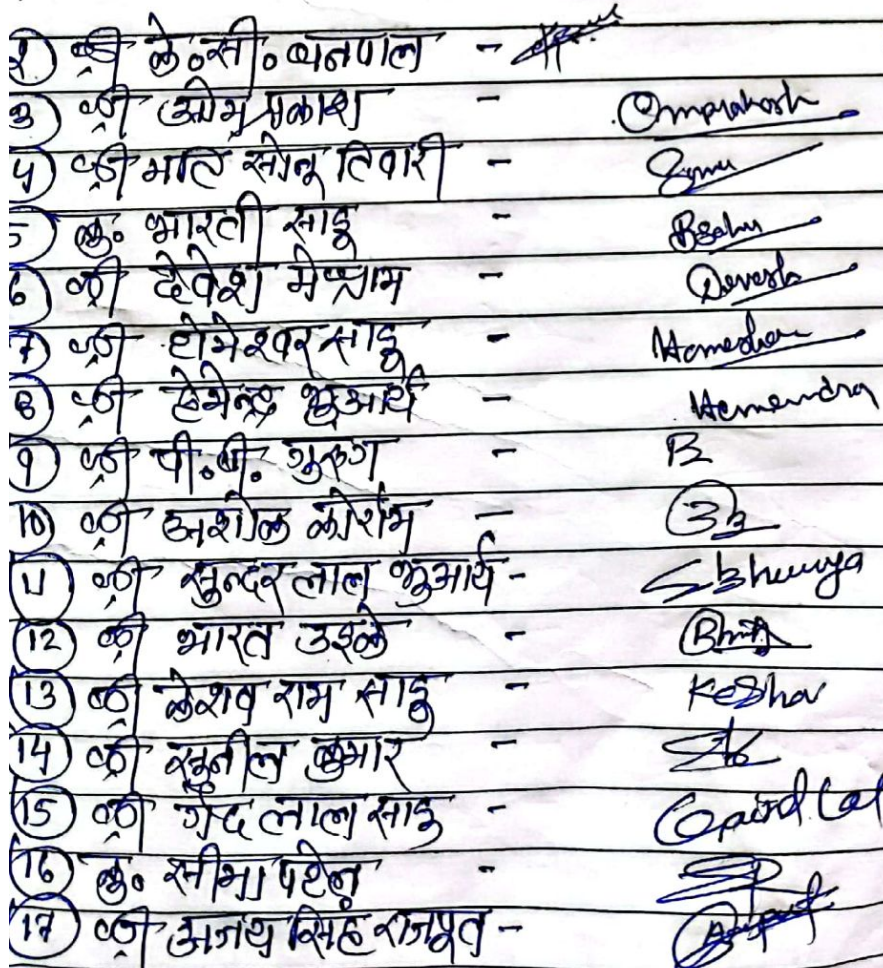 2) श्री के.सी. धनपाल -
3) श्री ओम प्रकाश - Omprakash
4) श्रीमति सोनू तिवारी - Sonu
5) कु. भारती साहू - BSahu
6) श्री देवेश मेश्राम - Devesh
7) श्री होमेश्वर साहू - Homeshwar
8) श्री हेमेन्द्र भुआर्य - Hemendra
9) श्री पी.बी. गुरुंग - B
10) श्री अशोक कोर्राम -
11) श्री सुन्दर लाल भुआर्य - Sbhuarya
12) श्री भारत उइके -
13) श्री केशव राम साहू - Keshav
14) श्री सुनील कुमार - Sk
15) श्री गेंद लाल साहू - Gaind Lal
16) कु. सीमा पटेल - SP
17) श्री अजय सिंह राजपूत -